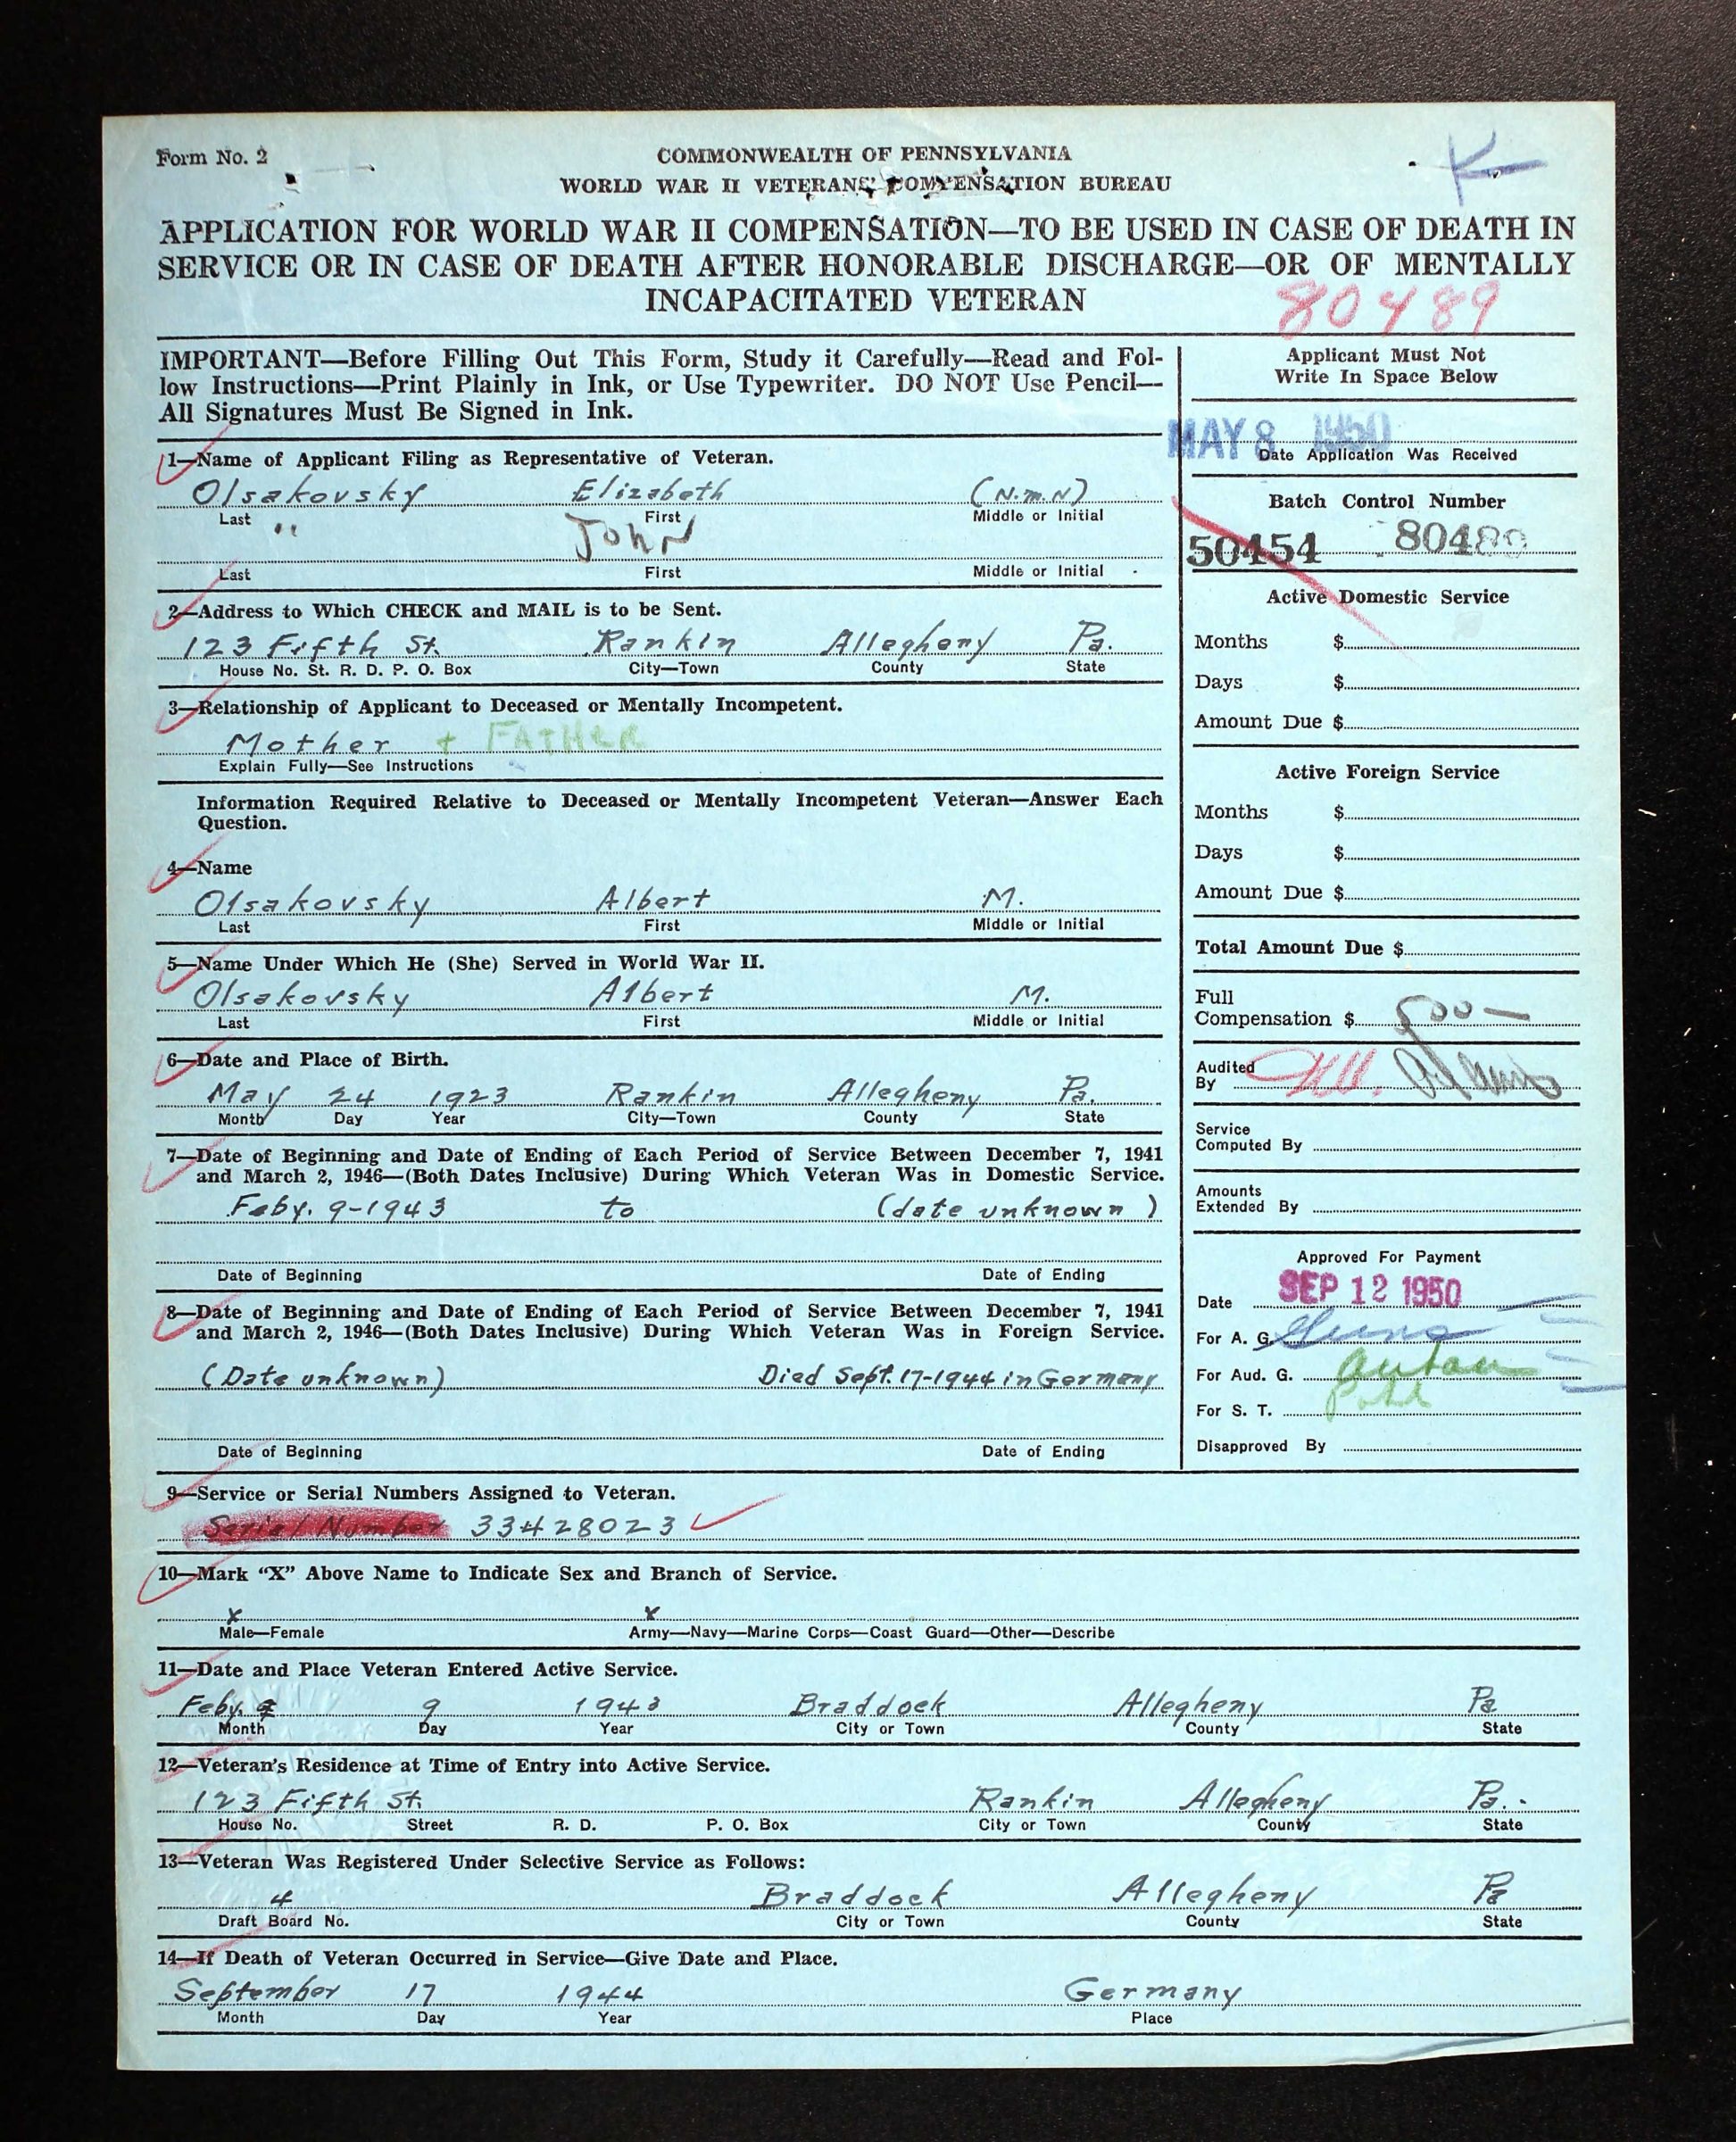 Form No. 2
COMMONWEALTH OF PENNSYLVANIA
WORLD WAR II VETERANS' COMPENSATION BUREAU
K
APPLICATION FOR WORLD WAR II COMPENSATION—TO BE USED IN CASE OF DEATH IN
SERVICE OR IN CASE OF DEATH AFTER HONORABLE DISCHARGE—OR OF MENTALLY
INCAPACITATED VETERAN
80489
IMPORTANT—Before Filling Out This Form, Study it Carefully—Read and Fol-
low Instructions—Print Plainly in Ink, or Use Typewriter. DO NOT Use Pencil—
All Signatures Must Be Signed in Ink.
1—Name of Applicant Filing as Representative of Veteran.
Olsakovsky Elizabeth (N.m.N)
Last First Middle or Initial
" JohN
Last First Middle or Initial
2—Address to Which CHECK and MAIL is to be Sent.
123 Fifth St. Rankin Allegheny Pa.
House No. St. R. D. P. O. Box City—Town County State
3—Relationship of Applicant to Deceased or Mentally Incompetent.
Mother + FATHER
Explain Fully—See Instructions
Information Required Relative to Deceased or Mentally Incompetent Veteran—Answer Each
Question.
4—Name
Olsakovsky Albert M.
Last First Middle or Initial
5—Name Under Which He (She) Served in World War II.
Olsakovsky Albert M.
Last First Middle or Initial
6—Date and Place of Birth.
May 24 1923 Rankin Allegheny Pa.
Month Day Year City—Town County State
7—Date of Beginning and Date of Ending of Each Period of Service Between December 7, 1941
and March 2, 1946—(Both Dates Inclusive) During Which Veteran Was in Domestic Service.
Feby. 9-1943 to (date unknown)
Date of Beginning Date of Ending
8—Date of Beginning and Date of Ending of Each Period of Service Between December 7, 1941
and March 2, 1946—(Both Dates Inclusive) During Which Veteran Was in Foreign Service.
(Date unknown) Died Sept. 17-1944 in Germany
Date of Beginning Date of Ending
Applicant Must Not
Write In Space Below
MAY 8 1950
Date Application Was Received
Batch Control Number
50454 80489
Active Domestic Service
Months $
Days $
Amount Due $
Active Foreign Service
Months $
Days $
Amount Due $
Total Amount Due $
Full
Compensation $ 500—
Audited
By
Service
Computed By
Amounts
Extended By
Approved For Payment
Date SEP 12 1950
For A. G.
For Aud. G.
For S. T.
Disapproved By
9—Service or Serial Numbers Assigned to Veteran.
Serial Number 33428023
10—Mark "X" Above Name to Indicate Sex and Branch of Service.
x x
Male—Female Army—Navy—Marine Corps—Coast Guard—Other—Describe
11—Date and Place Veteran Entered Active Service.
Feby. 9 1943 Braddock Allegheny Pa
Month Day Year City or Town County State
12—Veteran's Residence at Time of Entry into Active Service.
123 Fifth St. Rankin Allegheny Pa.
House No. Street R. D. P. O. Box City or Town County State
13—Veteran Was Registered Under Selective Service as Follows:
4 Braddock Allegheny Pa
Draft Board No. City or Town County State
14—If Death of Veteran Occurred in Service—Give Date and Place.
September 17 1944 Germany
Month Day Year Place